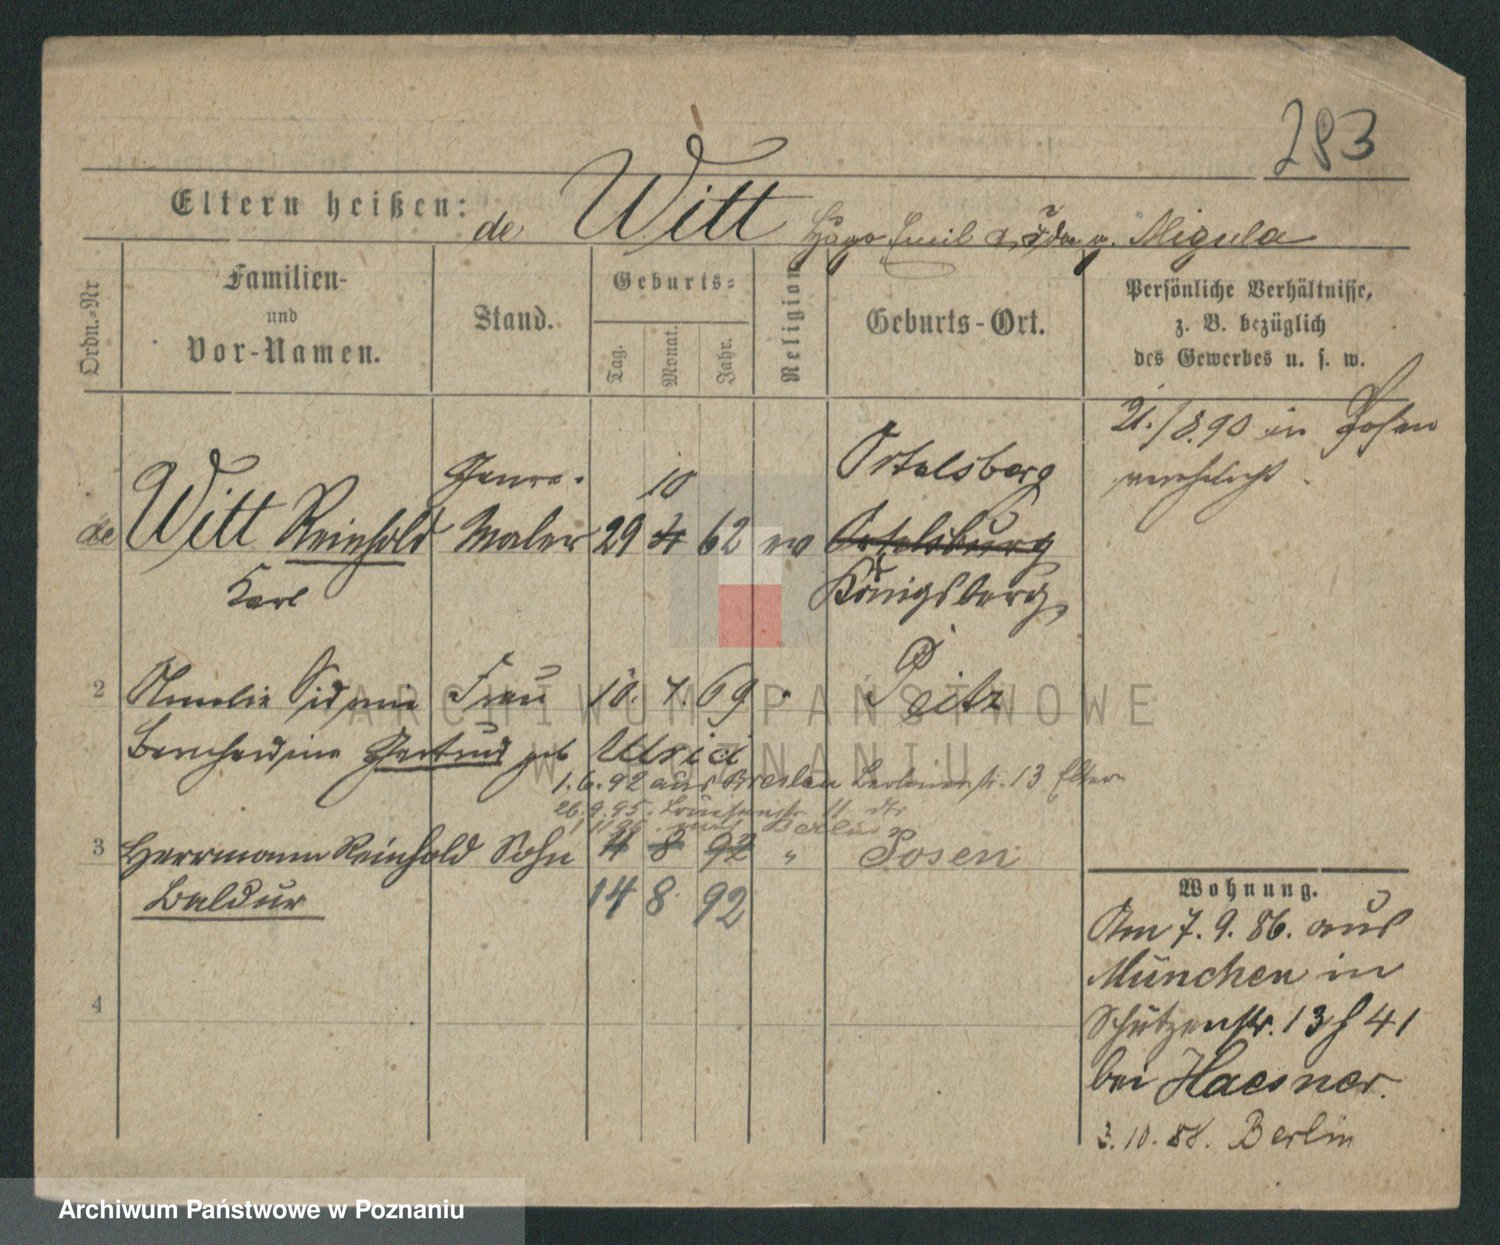 283
Eltern heißen: de Witt Hugo Emil u. Ida g. Migula
Ordn.-Nr
Familien-
und
Vor-Namen.
Stand.
Geburts-
Tag.
Monat.
Jahr.
Religion
Geburts-Ort.
Persönliche Verhältnisse,
z. B. bezüglich
des Gewerbes u. s. w.
21./8.90 in Posen
verehelicht.
Genre- 10 Ortelsberg
de Witt Reinhold Maler 29 4 62 ev Ortelsburg
Karl Königsberg
2 Amalie Sidonie Frau 10. 7. 69 " Peitz
Bernhardine Gertrud geb
1.6.92 aus Breslau Berlinerstr. 13 Eltern
26.9.95. Louisenstr. 11
Berlin
3 Herrmann Reinhold Sohn 4 8 92 " Posen
Baldur 14 8 92
4
Wohnung.
Am 7. 9. 86. aus
München in
Schützenstr. 13 H. 41
bei Haesner.
3. 10. 88. Berlin
ARCHIWUM PAŃSTWOWE
W POZNANIU
Archiwum Państwowe w Poznaniu